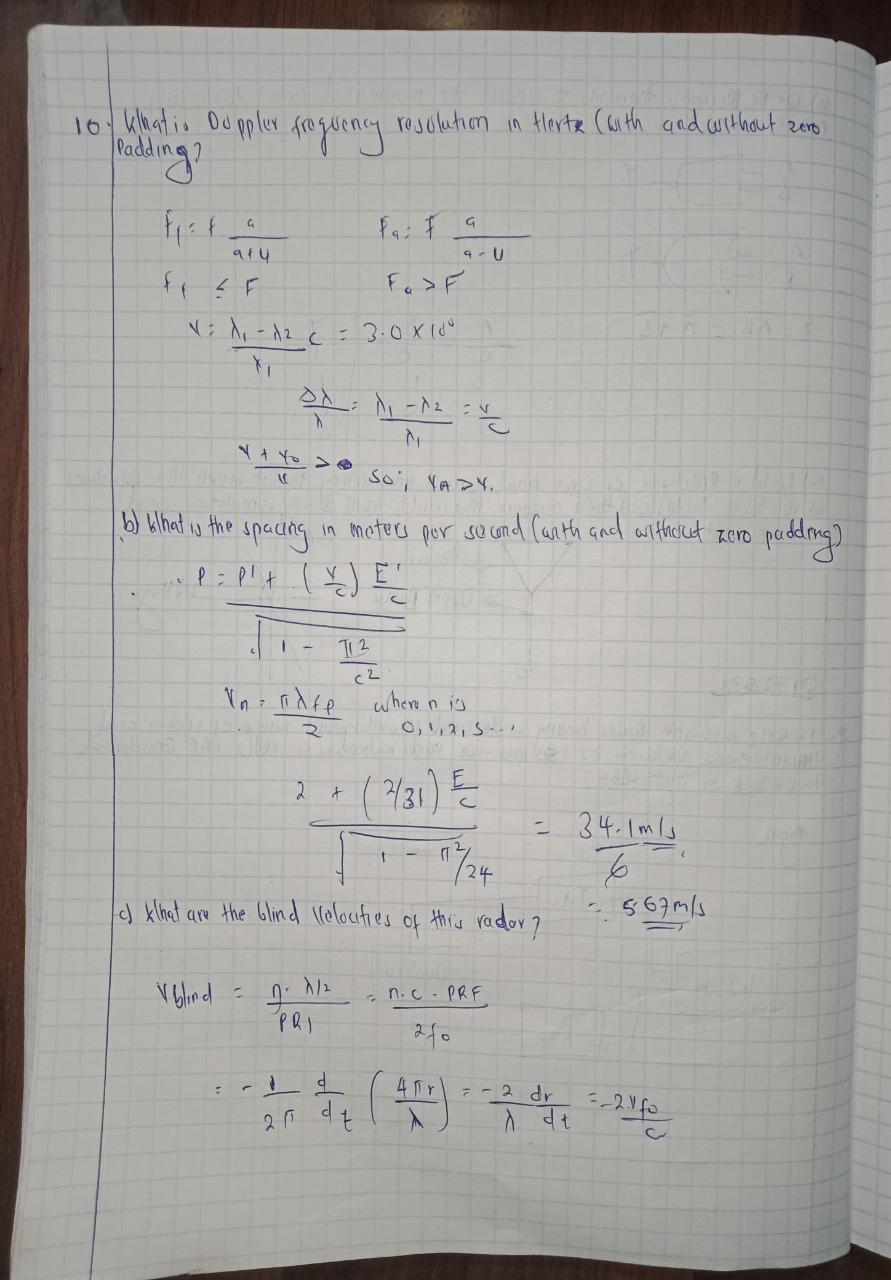 10. What is Doppler frequency resolution in Hertz (with and without zero
Padding?
f₁ = f a/(a+u)    Fa = F a/(a-U)
f₁ ≤ F    Fa > F
v = (λ₁ - λ2)/λ₁ c = 3.0 X 10
Δλ/λ = (λ₁ - λ2)/λ₁ = v/c
so, VA > V.
b) What is the spacing in meters per second (with and without zero padding)
P = (P' + (v/c) E'/c)/√(1 - π2/c2)
Vn = πλfp/2    where n is
0, 1, 2, 3...
(2 + (2/31) E/c)/√(1 - π2/24) = 34.1m/s/6
= 5.67m/s
c) What are the blind velocities of this radar?
Vblind = (n. λ/2)/PRI = (n.c. PRF)/2fo
= - 1/2π d/dt (4πr/λ) = - 2/λ dr/dt = -2.vfo/c